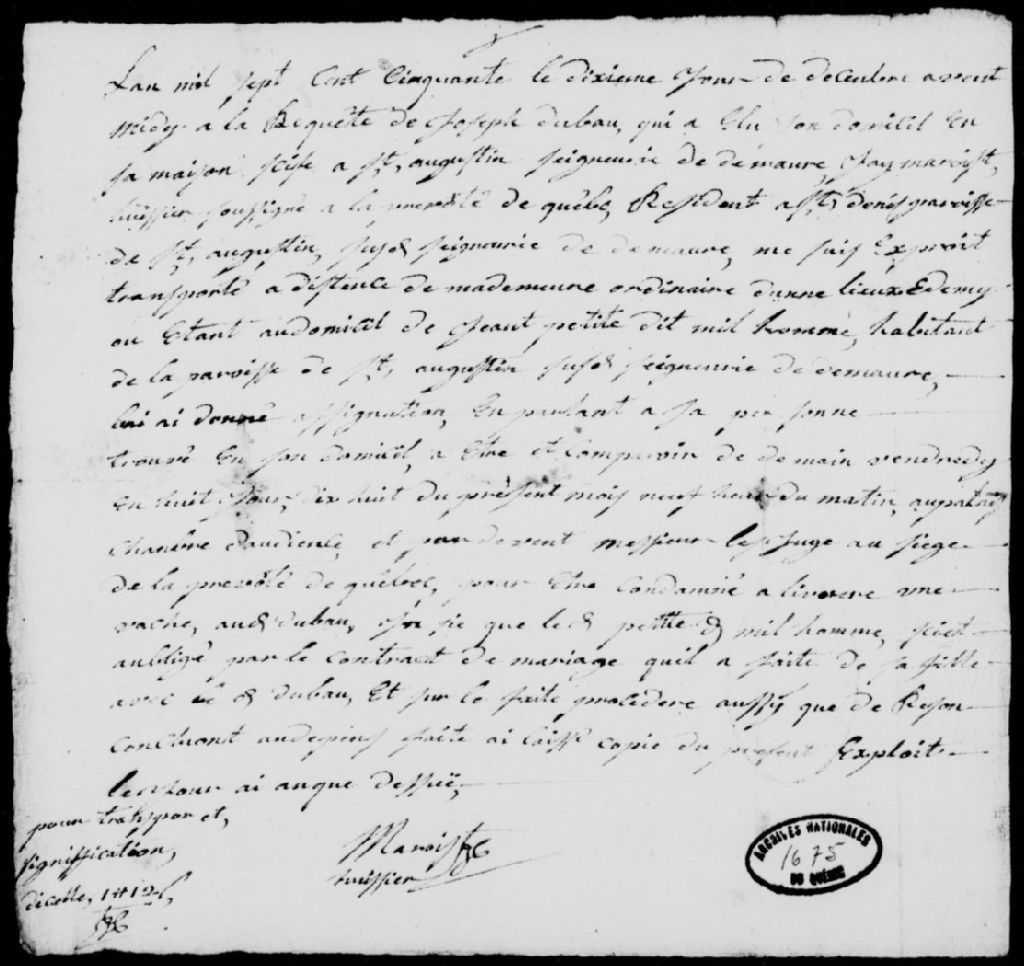 Lan mil sept Cent Cinquante le dixieme Jour de decembre avant
midy a la Requête de Joseph dubau, qui a Elu son domicil En
sa maison sise a St, augustin seigneurie de demaure, Jay maroist,
huissier soussigné a la prevôté de québec, Resident a St denis paroisse
de St, augustin, susd seigneurie de demaure, me suis Exproit
transporté a distence de mademeure ordinaire dunne lieux Edemy
ou Etant audomicil de Jeant petite dit mil homme, habitant
de la paroisse de St, augustin susd seigneurie de demaure,
lui ai donné assignation, En parlant a sa personne
trouvé En son domicil, a Etre et Comparoir de demain vendredy
En huit Jour, dix huit du présent mois neuf heur du matin, aupalais
chambre daudience, et pardevent messieur les Juge au siege
de la prevôté de québec, pour Etre Condamné a livrere une
vache, aud dubau, que led petite d mil homme, siest
aubligé par le Contract de mariage quil a faite de sa fille
avec le d dubau, Et sur le faite procedere aussy que de Reson
Concluont audepens faite ai laissé copie du present Exploit
les Jour ai anque dessus,
pour transport,
signiffication,
dicelle,
Maroist
huissier
ARCHIVES NATIONALES
1675
DU QUÉBEC